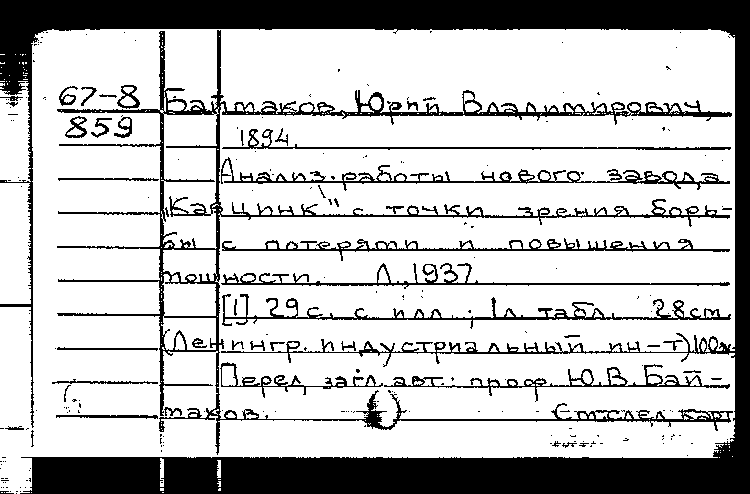 67-8 Баймаков, Юрий Владимирович,
859 1894.
Анализ работы нового завода
„Кавцинк" с точки зрения борь-
бы с потерями и повышения
мощности. Л., 1937.
[1], 29 с. с илл.; 1 л. табл. 28 см.
(Ленингр. индустриальный ин-т) 100 экз.
Перед загл. авт.: проф. Ю. В. Бай-
маков.
См. след. карт